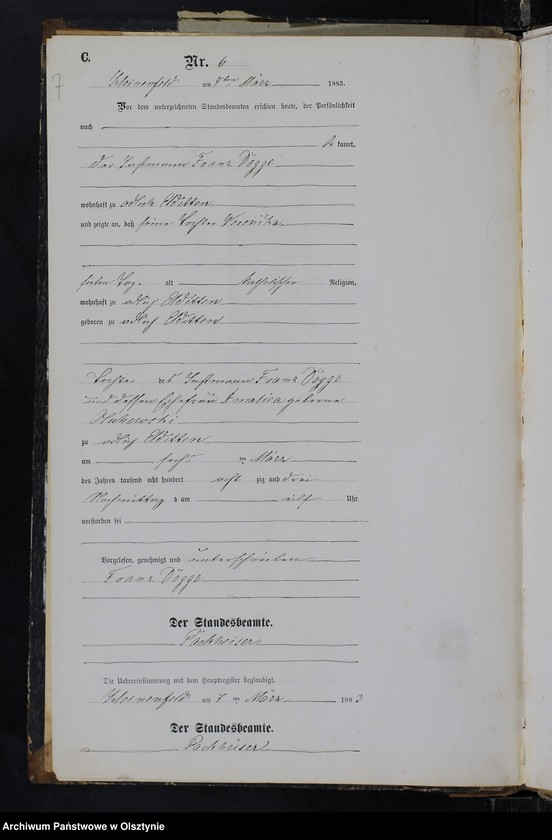 C.
Nr. 6
7
Kleinenfeld am 7ten März 1883.
Vor dem unterzeichneten Standesbeamten erschien heute, der Persönlichkeit
nach
be kannt,
der Instmann Franz Dögge
wohnhaft zu adlich Elditten
und zeigte an, daß seine Tochter Veronika
sieben Tag. alt katholischer Religion,
wohnhaft zu adlich Elditten
geboren zu adlich Elditten
Tochter des Instmann Franz Dögge
und dessen Ehefrau Amalia geborne
zu adlich Elditten
am sechs ten März
des Jahres tausend acht hundert acht zig und drei
Nachmittag s um eilf Uhr
verstorben sei
Vorgelesen, genehmigt und unterschrieben
Franz Dögge
Der Standesbeamte.
Packheiser
Die Uebereinstimmung mit dem Hauptregister beglaubigt.
Kleinenfeld am 7 ten März 1883
Der Standesbeamte.
Packheiser
Archiwum Państwowe w Olsztynie